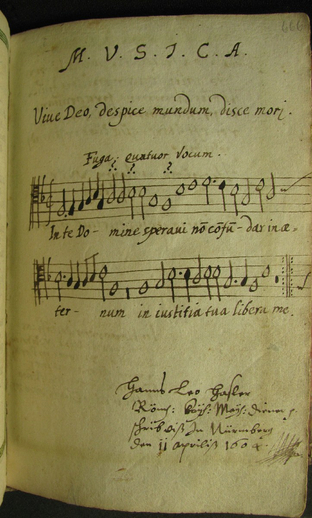 666
M. V. S. I. C. A.
Viue Deo, despice mundum, disce mori.
Fuga: quatuor Vocum.
In te Do- mine speraui nō cōfū- dar in æ-
ter- num in iustitia tua libera me.
Hanns Leo Hasler
Röm: Kays: May: diener
schrib diß In Nürmberg
den 11 Aprilis 160